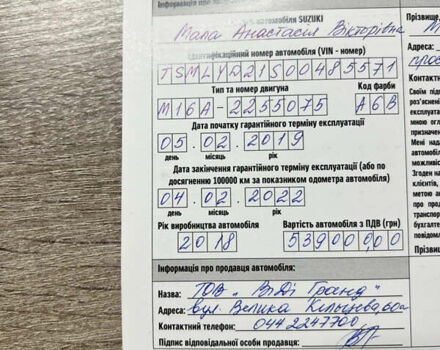 Інформація про
автомобіля SUZUKI
Мала Анастасія Вікторівна
Ідентифікаційний номер автомобіля (VIN - номер)
TSMLYD21S00485571
Тип та номер двигуна Код фарби
M16A-2255075 A6B
Дата початку гарантійного терміну експлуатації
05.02.2019
день місяць рік
Дата закінчення гарантійного терміну експлуатації (або по
досягненню 100000 км за показником одометра автомобіля)
04.02.2022
день місяць рік
Рік виробництва автомобіля Вартість автомобіля з ПДВ (грн)
2018 539000,00
Інформація про продавця автомобіля:
Назва: ТОВ "ВіДі Гранд"
Адреса: вул. Велика Кільцева
Контактний телефон: 0442247700
Підпис відповідальної особи продавця:
Прізвище
Адреса:
Контакт
Своїм під
роз'яснен
експлуата
мною огл
призначен
Мені нада
автомобіл
можливіс
Згоден на
клієнтів,
метою а
про екс
транспорт
бухгалтер
повідомл